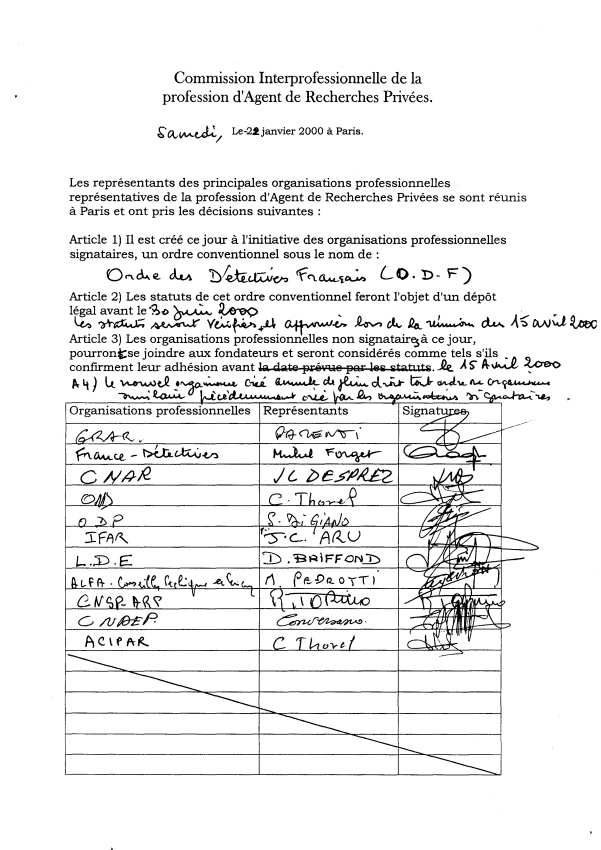 Commission Interprofessionnelle de la
profession d'Agent de Recherches Privées.
Samedi, Le 22 janvier 2000 à Paris.
Les représentants des principales organisations professionnelles
représentatives de la profession d'Agent de Recherches Privées se sont réunis
à Paris et ont pris les décisions suivantes :
Article 1) Il est créé ce jour à l'initiative des organisations professionnelles
signataires, un ordre conventionnel sous le nom de :
Ordre des Détectives Français (O.D-F)
Article 2) Les statuts de cet ordre conventionnel feront l'objet d'un dépôt
légal avant le 30 juin 2000
Les statuts seront vérifiés et approuvés lors de la réunion du 15 avril 2000
Article 3) Les organisations professionnelles non signataires à ce jour,
pourront se joindre aux fondateurs et seront considérés comme tels s'ils
confirment leur adhésion avant la date prévue par les statuts. le 15 Avril 2000
A4) Le nouvel organisme créé annule de plein droit tout ordre ou organisme
similaire précédemment créé par les organisations signataires.
Organisations professionnelles Représentants Signatures
GRAR. PARENTI
France-Détectives Michel Forget
CNAR JC DESPREZ
OND C. Thorel
ODP S. DI GIANO
IFAR J.C. ARU
L.D.E D. BRIFFOND
ALFA. M. PEDROTTI
CNSP.ARP
CNDEP. Conversano.
ACIPAR C Thorel